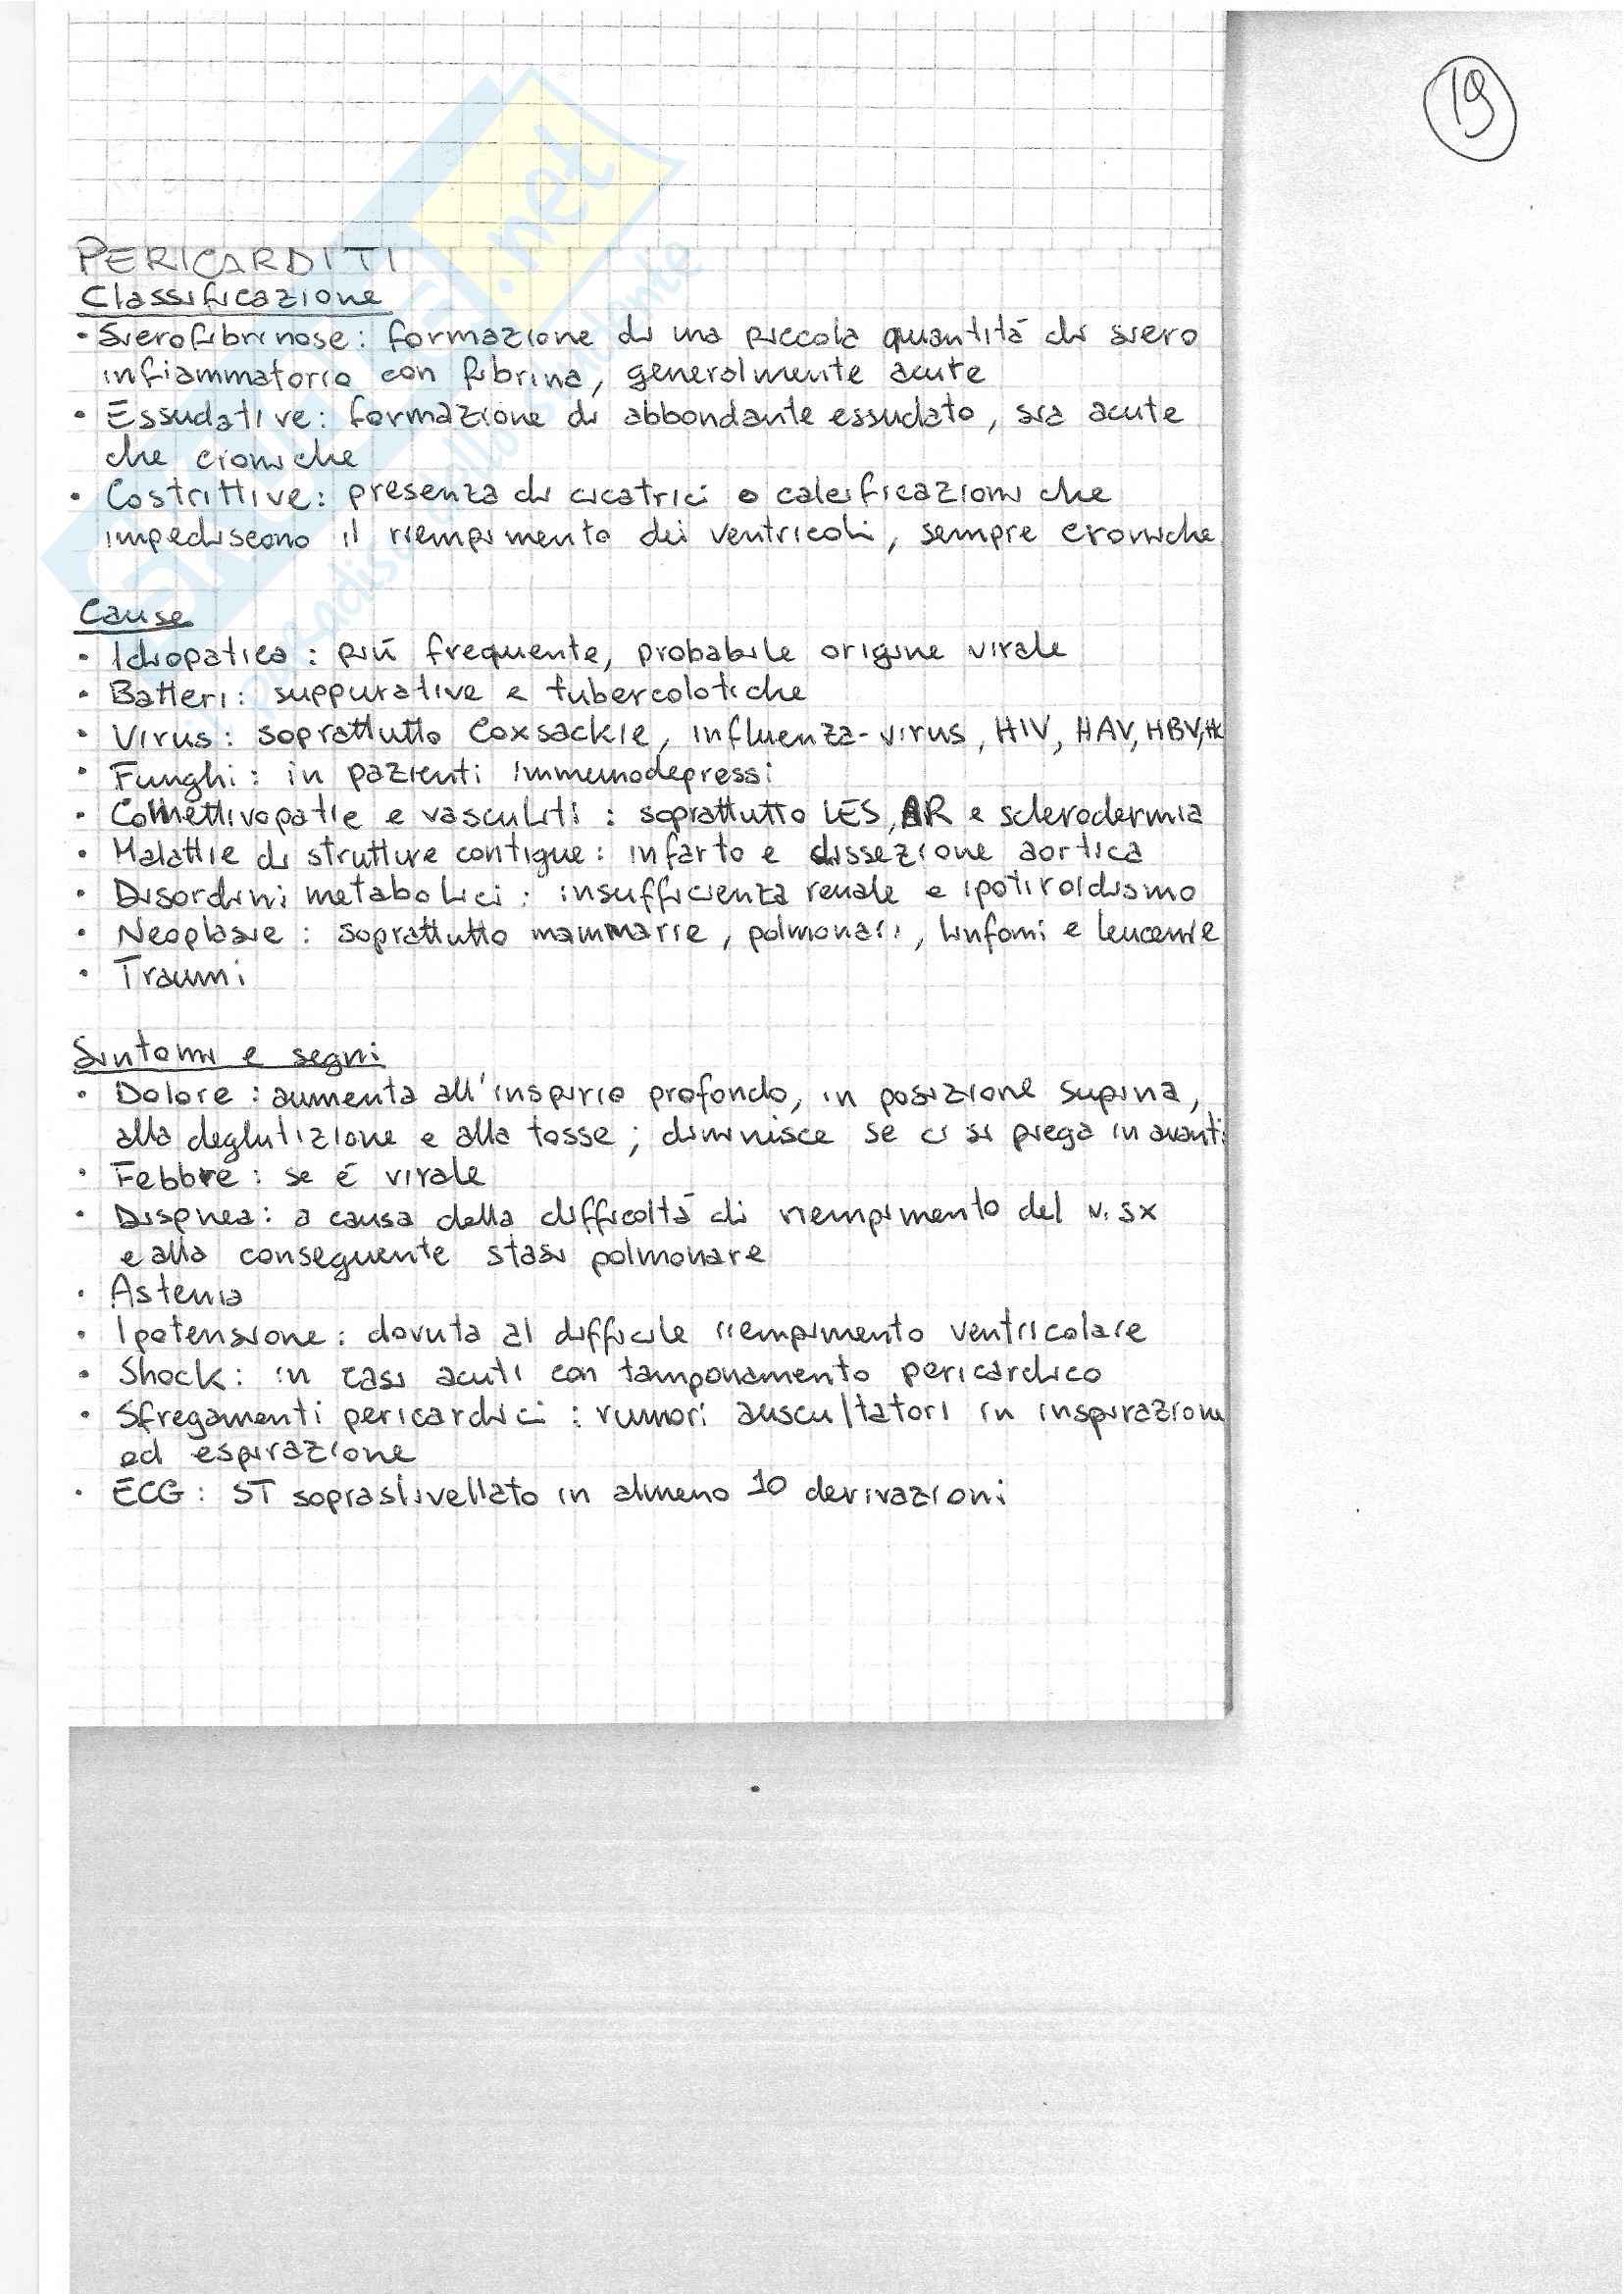 19
PERICARDITI
Classificazione
• Sierofibrinose: formazione di una piccola quantità di siero
infiammatorio con fibrina, generalmente acute
• Essudative: formazione di abbondante essudato, sia acute
che croniche
• Costrittive: presenza di cicatrici o calcificazioni che
impediscono il riempimento dei ventricoli, sempre croniche
Cause
• Idiopatica: più frequente, probabile origine virale
• Batteri: suppurative e tubercolotiche
• Virus: soprattutto Coxsackie, influenza-virus, HIV, HAV, HBV, HC
• Funghi: in pazienti immunodepressi
• Connettivopatie e vasculiti: soprattutto LES, AR e sclerodermia
• Malattie di strutture contigue: infarto e dissezione aortica
• Disordini metabolici: insufficienza renale e ipotiroidismo
• Neoplasie: soprattutto mammarie, polmonari, linfomi e leucemie
• Traumi
Sintomi e segni
• Dolore: aumenta all'inspirio profondo, in posizione supina,
alla deglutizione e alla tosse; diminuisce se ci si piega in avanti
• Febbre: se è virale
• Dispnea: a causa della difficoltà di riempimento del v. sx
e alla conseguente stasi polmonare
• Astenia
• Ipotensione: dovuta al difficile riempimento ventricolare
• Shock: in casi acuti con tamponamento pericardico
• Sfregamenti pericardici: rumori auscultatori in inspirazione
ed espirazione
• ECG: ST sopraslivellato in almeno 10 derivazioni
.net